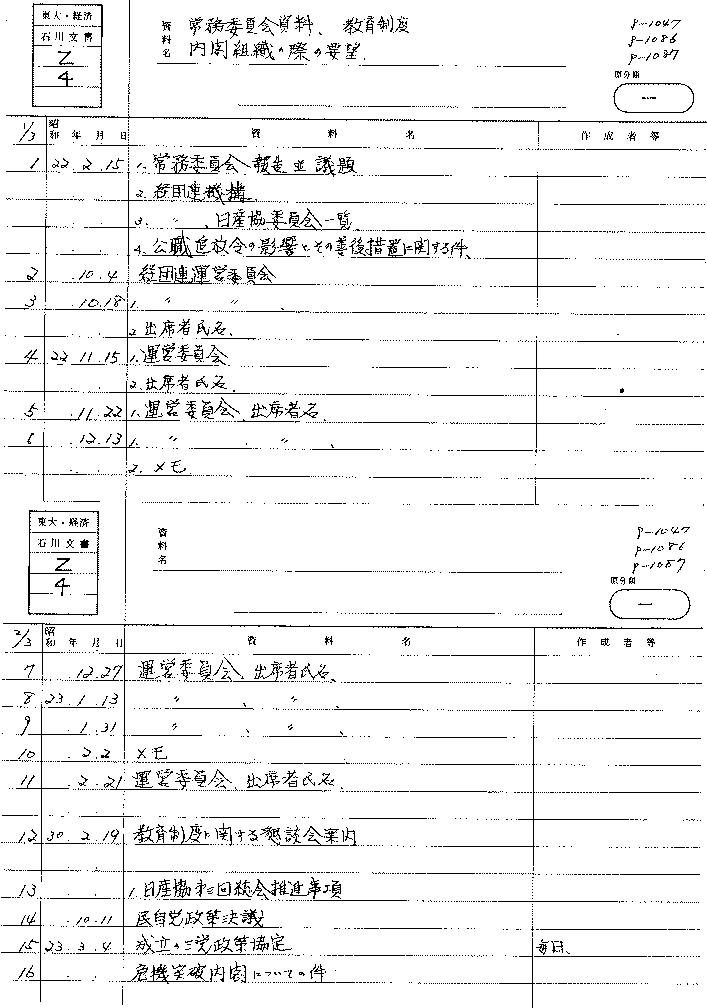 東大・経済
石川文書
Z
4
資料名 常務委員会資料、教育制度
内閣組織の際の要望
P-1047
P-1086
P-1087
原分類
一
1/3 昭和 年 月 日 資料名 作成者等
1 22. 2. 15 1. 常務委員会報告並議題
2. 経団連機構
3. 〃 、日産協委員会一覧
4. 公職追放令の影響とその善後措置に関する件、
2 . 10. 4 経団連運営委員会
3 . 10. 18 1. 〃 〃 、
2. 出席者氏名、
4 22. 11. 15 1. 運営委員会
2. 出席者氏名、
5 . 11. 22 1. 運営委員会、出席者名、
6 . 12. 13 1. 〃 、 〃 、
2. メモ
東大・経済
石川文書
Z
4
資料名
P-1047
P-1086
P-1087
原分類
一
2/3 昭和 年 月 日 資料名 作成者等
7 12. 27 運営委員会、出席者氏名、
8 23. 1. 13 〃 、 〃 、
9 . 1. 31 〃 、 〃 、
10 . 2. 2 メモ
11 . 2. 21 運営委員会、出席者氏名、
12 30. 2. 19 教育制度に関する懇談会案内
13 . . 1. 日産協第三回総会推進事項
14 . 10. 11 民自党政策決議
15 23. 3. 4. 成立の三党政策協定 毎日、
16 . . 危機突破内閣についての件